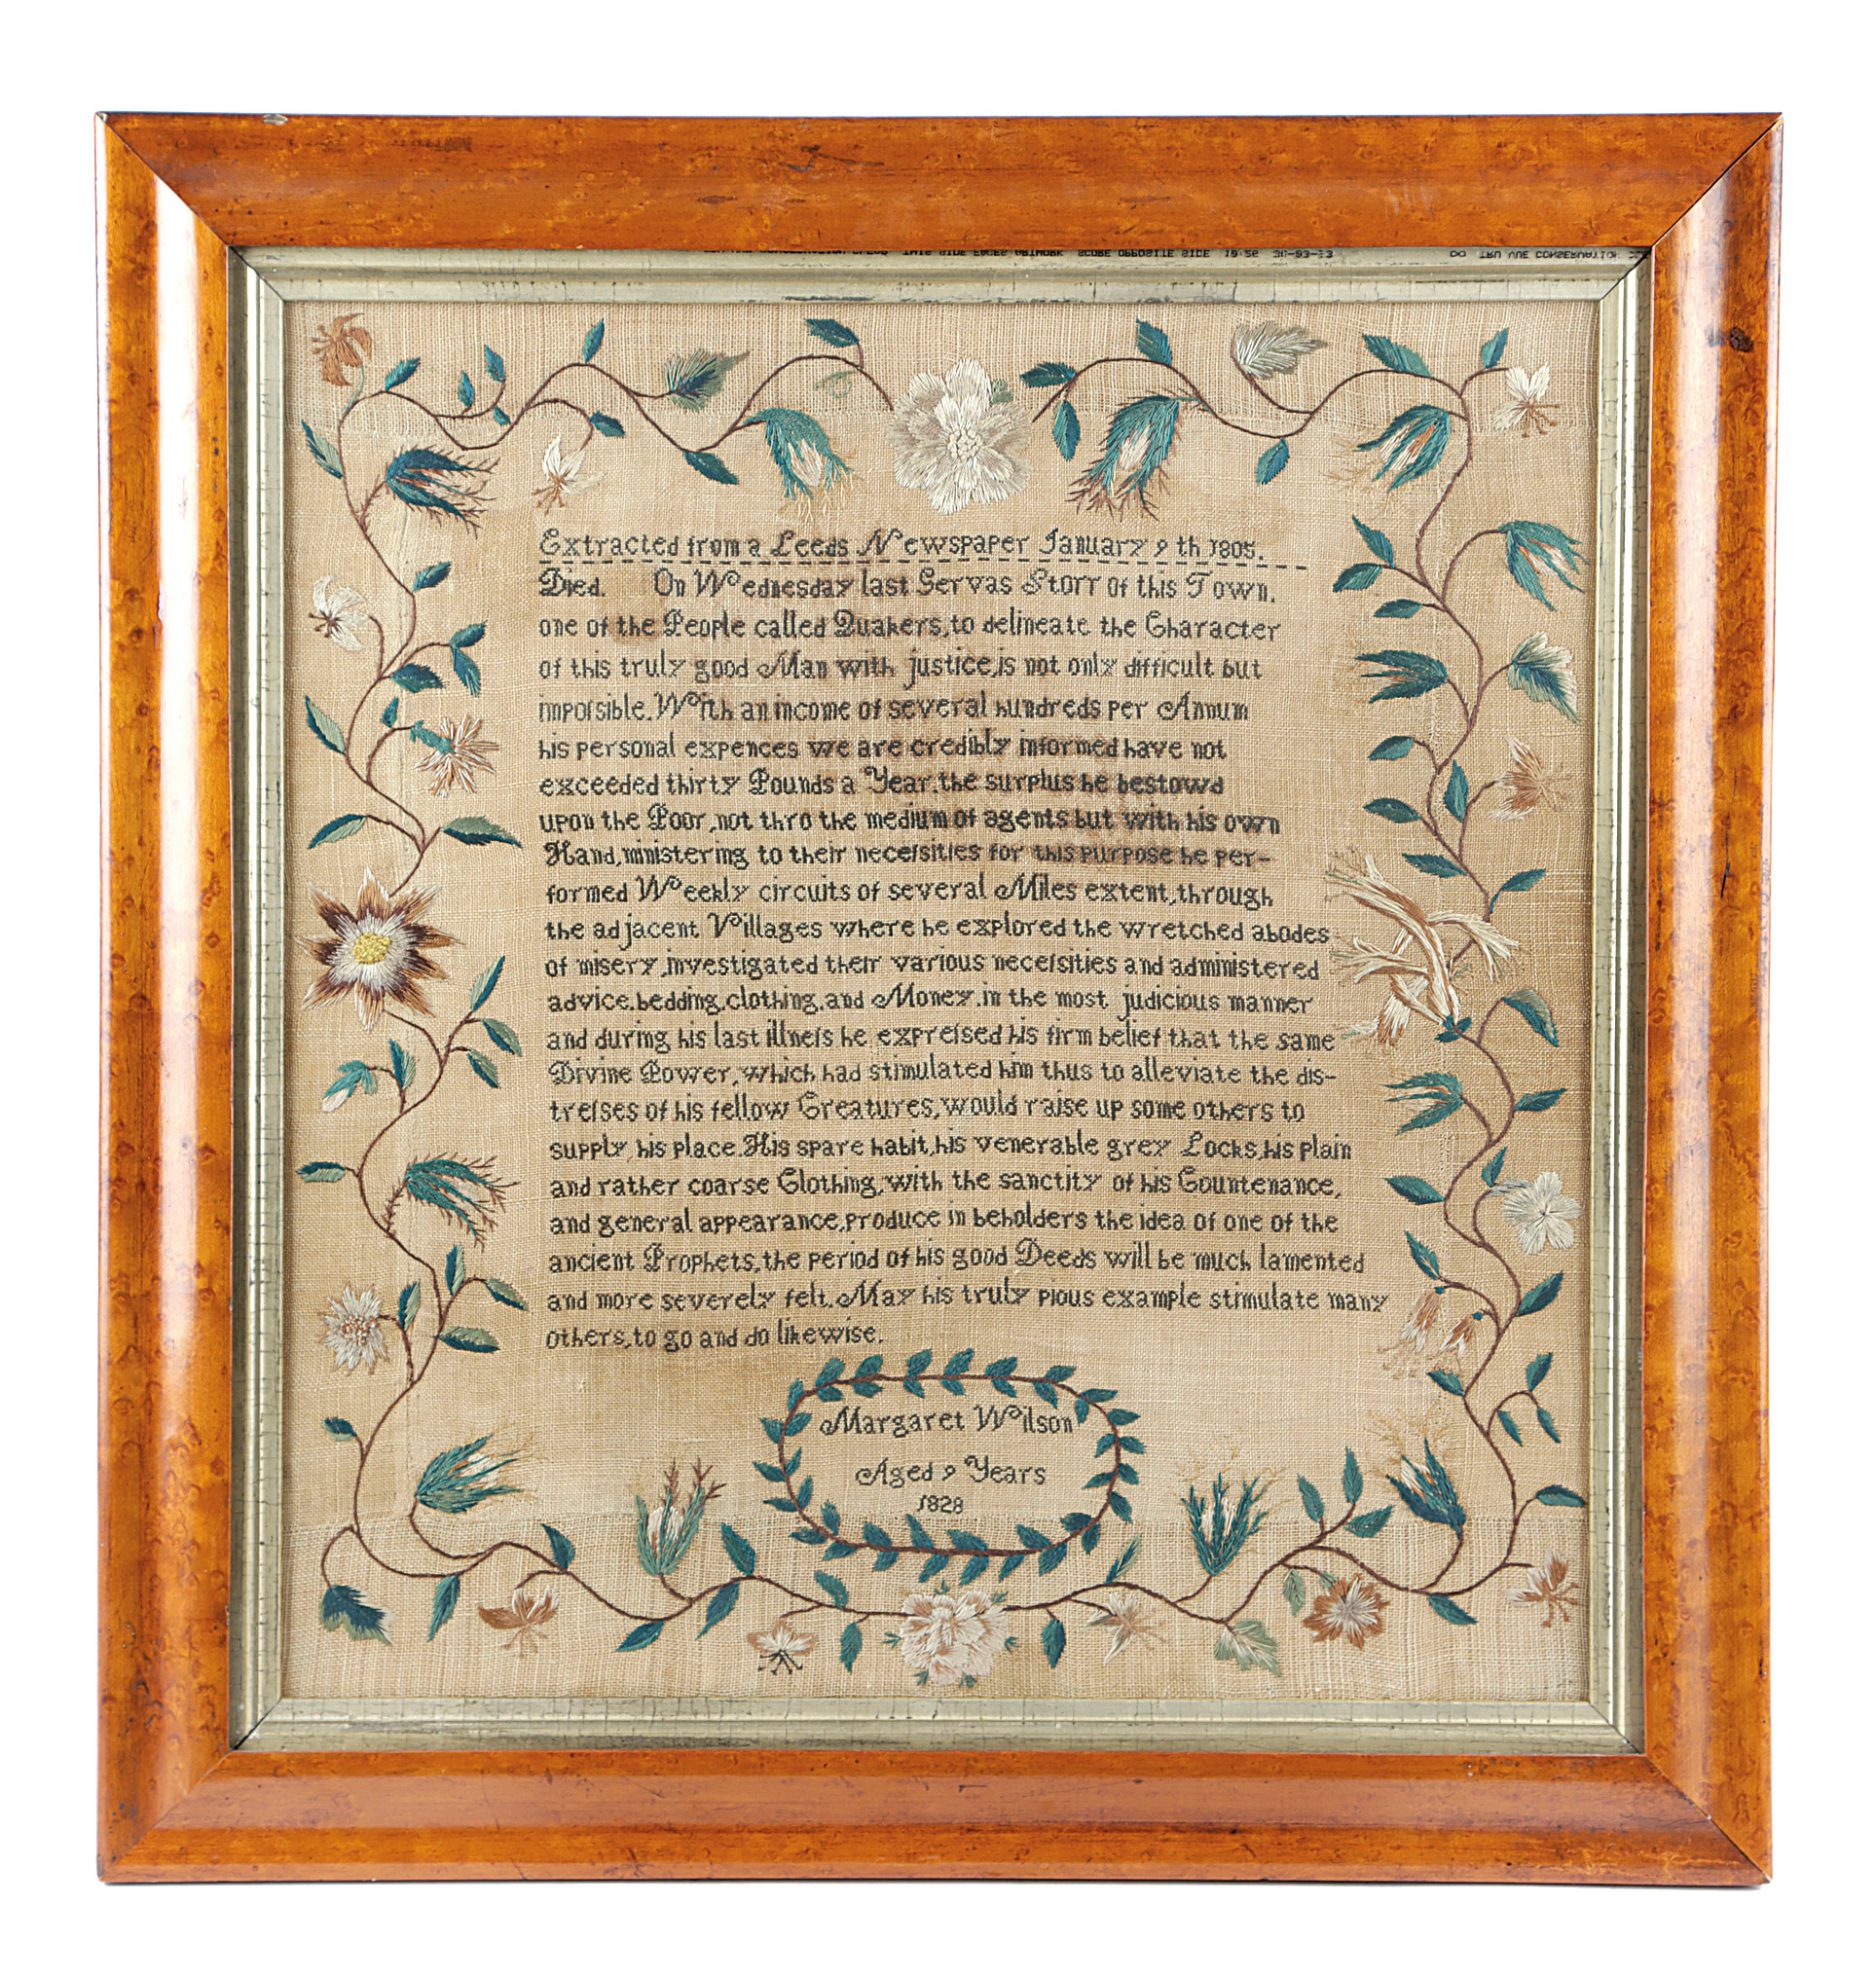 Extracted from a Leeds Newspaper January 9th 1805.
Died. On Wednesday last Servas Storr of this Town.
one of the People called Quakers, to delineate the Character
of this truly good Man with justice, is not only difficult but
impoſsible. With an income of several hundreds per Annum
his personal expences we are credibly informed have not
exceeded thirty Pounds a Year. the surplus he bestowd
upon the Poor, not thro the medium of agents but with his own
Hand, ministering to their neceſsities for this purpose he per-
formed Weekly circuits of several Miles extent, through
the adjacent Villages where he explored the wretched abodes
of misery, investigated their various neceſsities and administered
advice. bedding, clothing, and Money. in the most judicious manner
and during his last illneſs he expreſsed his firm belief that the same
Divine Power, which had stimulated him thus to alleviate the dis-
treſses of his fellow Creatures, would raise up some others to
supply his place. His spare habit, his venerable grey Locks, his plain
and rather coarse Clothing, with the sanctity of his Countenance,
and general appearance, produce in beholders the idea of one of the
ancient Prophets, the period of his good Deeds will be much lamented
and more severely felt. May his truly pious example stimulate many
others, to go and do likewise.
Margaret Wilson
Aged 9 Years
1828